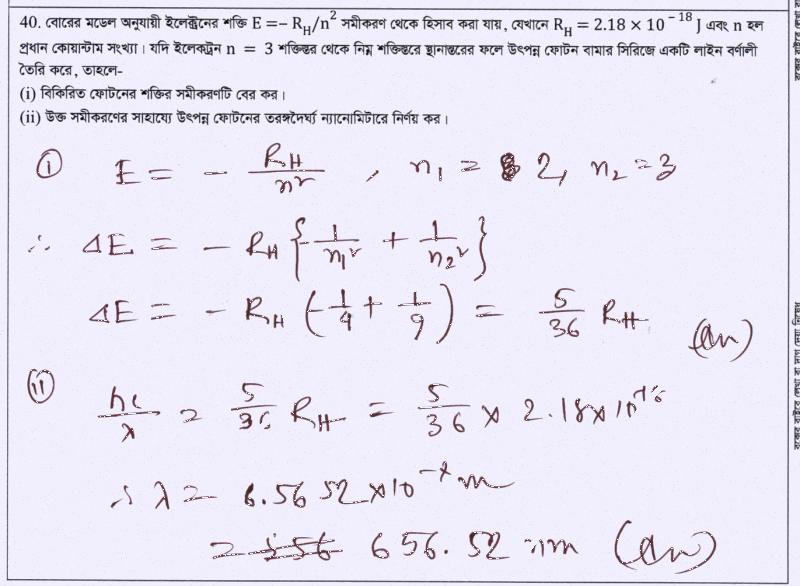 40. বোরের মডেল অনুযায়ী ইলেক্ট্রনের শক্তি E =– R_H/n² সমীকরণ থেকে হিসাব করা যায়, যেখানে R_H = 2.18 × 10⁻¹⁸ J এবং n হল
প্রধান কোয়ান্টাম সংখ্যা। যদি ইলেকট্রন n = 3 শক্তিস্তর থেকে নিম্ন শক্তিস্তরে স্থানান্তরের ফলে উৎপন্ন ফোটন বামার সিরিজে একটি লাইন বর্ণালী
তৈরি করে, তাহলে-
(i) বিকিরিত ফোটনের শক্তির সমীকরণটি বের কর।
(ii) উক্ত সমীকরণের সাহায্যে উৎপন্ন ফোটনের তরঙ্গদৈর্ঘ্য ন্যানোমিটারে নির্ণয় কর।
(i) E = – R_H/n² , n₁ = 2, n₂ = 3
∴ ΔE = – R_H {–1/n₁² + 1/n₂²}
ΔE = – R_H (–1/4 + 1/9) = 5/36 R_H (An)
(ii) hc/λ = 5/36 R_H = 5/36 × 2.18×10⁻¹⁸
∴ λ = 6.5652×10⁻⁷ m
= 656.52 nm (An)